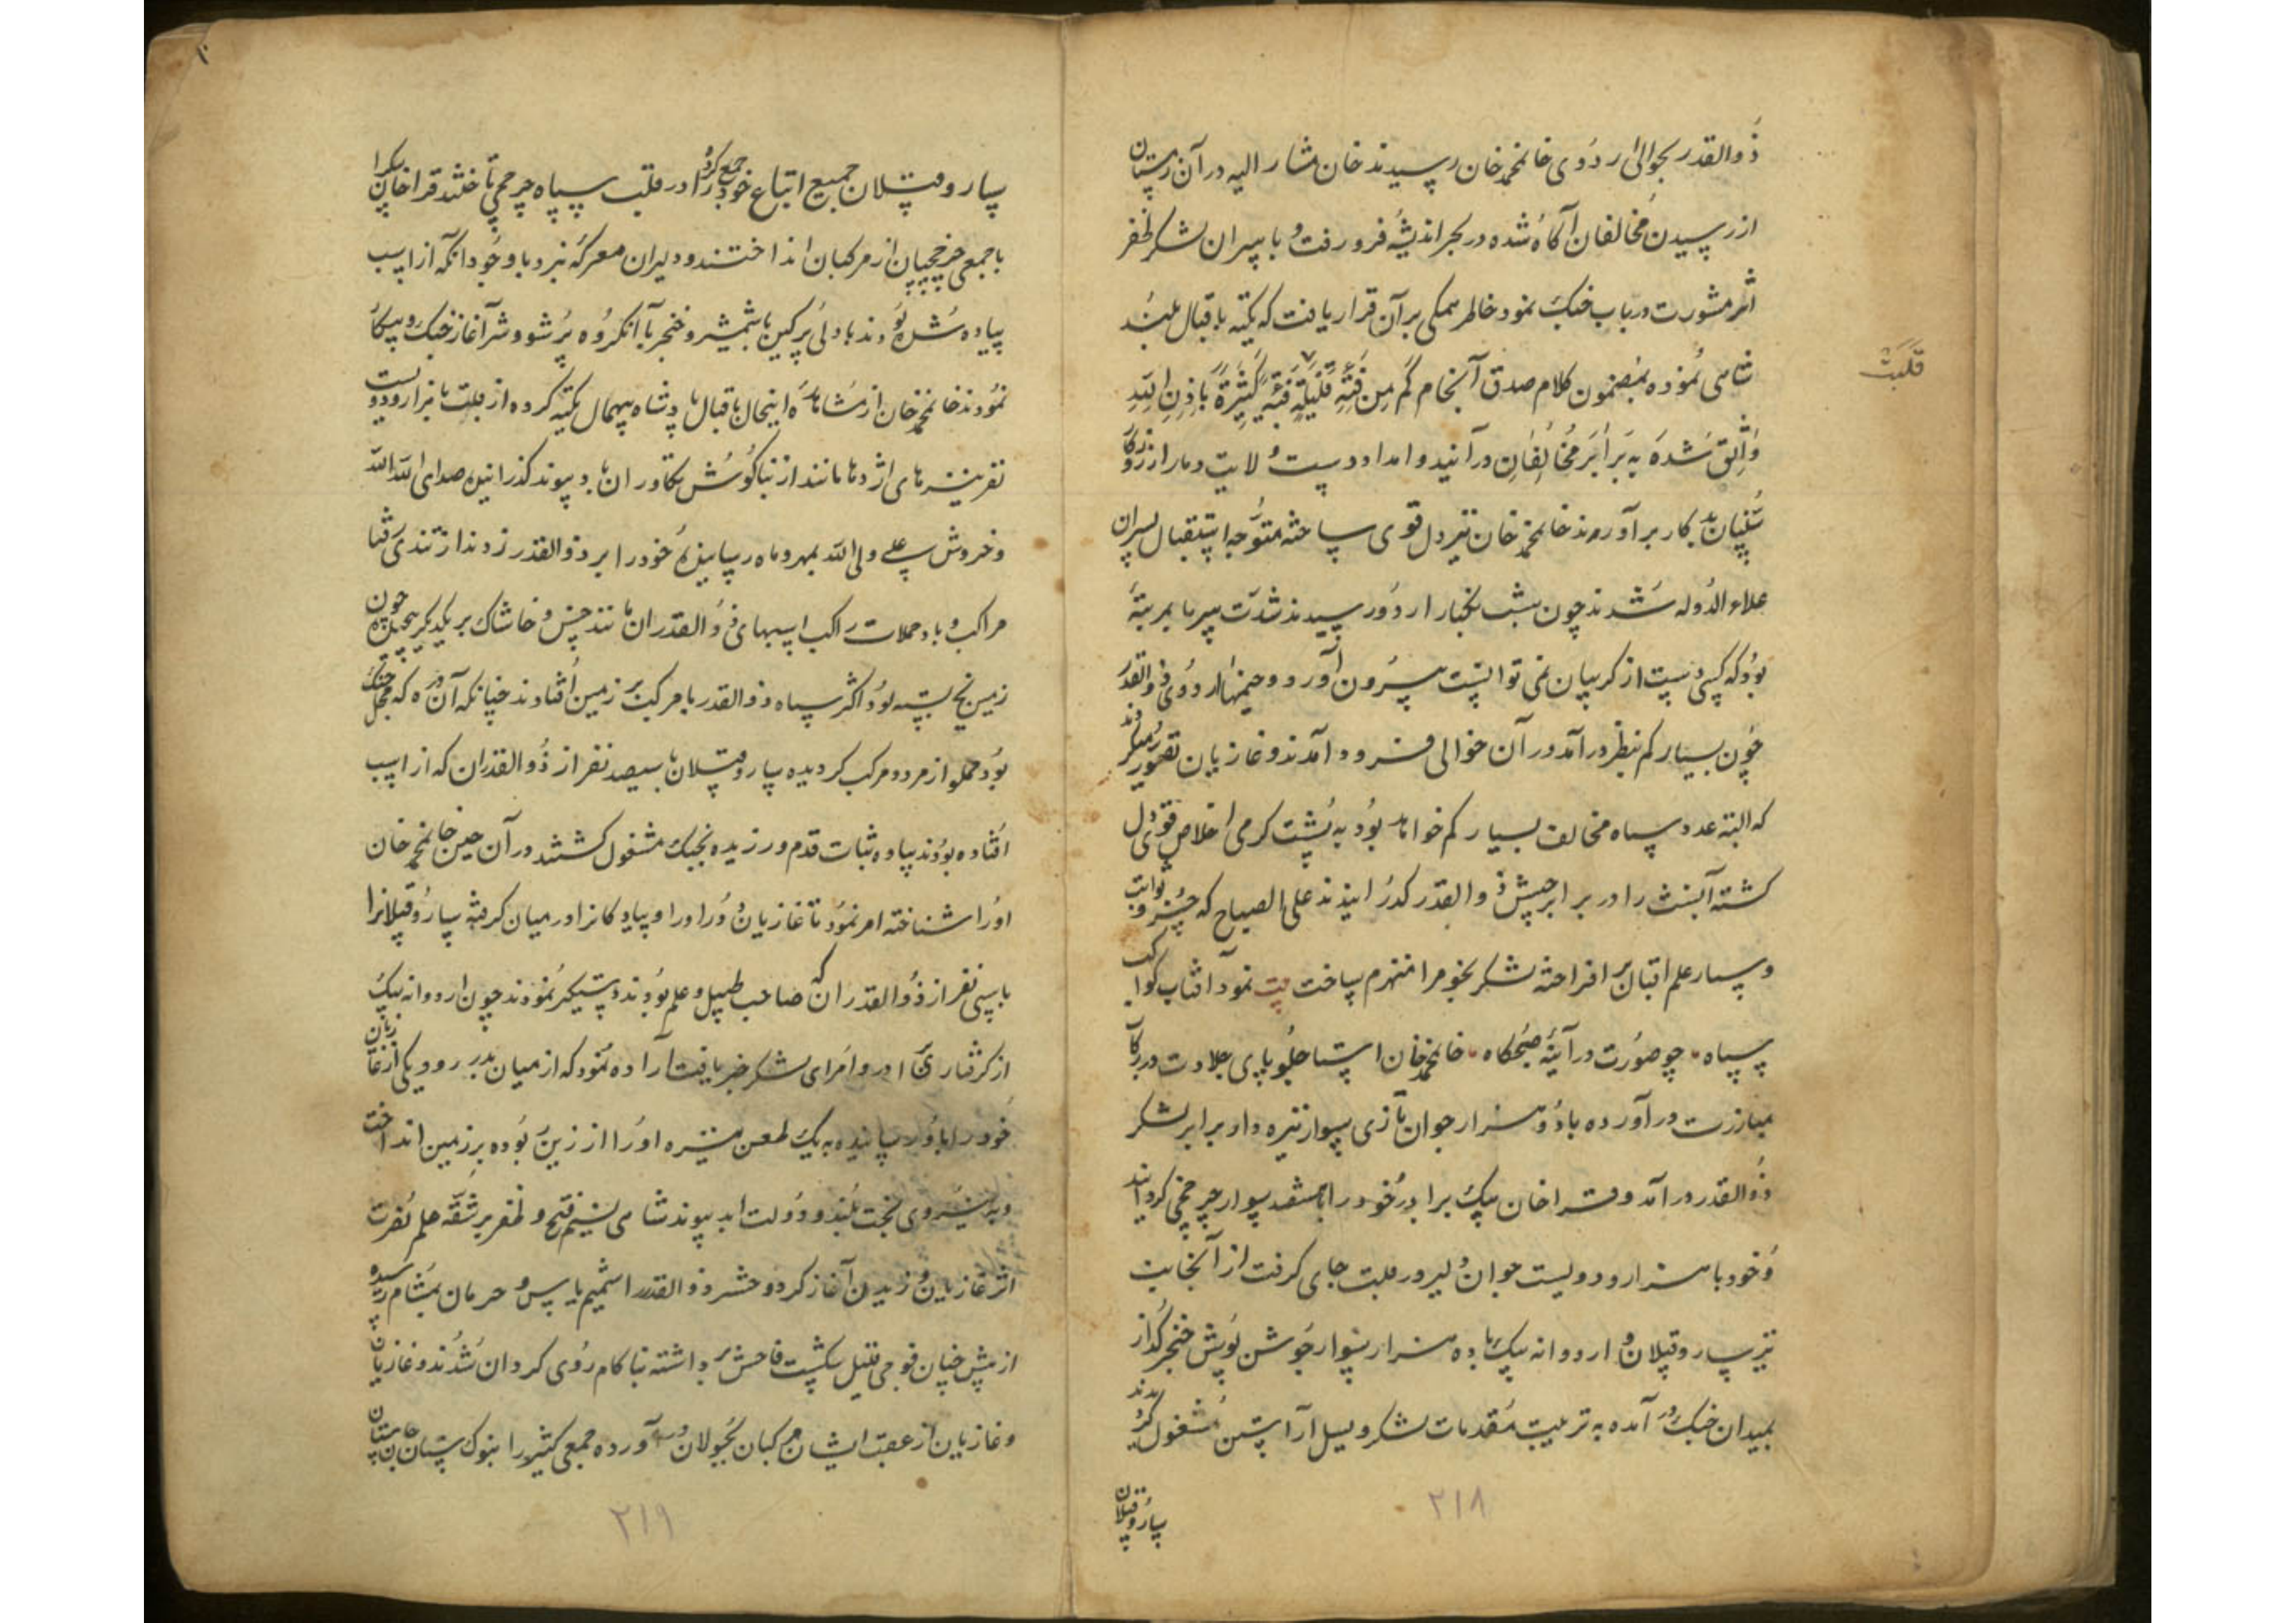 ذوالقدر بحوالی اردوی خانمحمد خان رسیدند خان مشار الیه در آن زمستان
از رسیدن مخالفان آگاه شده در بحر اندیشه فرو رفت و با سران لشکر ظفر
اثر مشورت در باب جنک نمود خاطر همکی بر آن قرار یافت که تکیه باقبال بلند
شاهی نموده بمضمون کلام صدق آنجام کم من فئة قلیلة غلبت فئة کثیرة باذن الله
قلبت
واثق شده به برابر مخالفان در آنید و امداد دست ولایت دمار از روزکار
سنیان بد کار برآورند خانمحمد خان نیز دل قوی ساخته متوجه استقبال پسران
علاء الدوله شدند چون شب بکنار اردو رسیدند شدت سرما بمرتبهٔ
بود که کسی دست از کریبان نمی توانست بیرون آورد و خیمهای اردوی ذوالقدر
چون بسیار کم بنظر در آمد در آن حوالی فرود آمدند و غازیان تصور میکردند
که البته عدد سپاه مخالف بسیار کم خواهد بود به پشت کرمی اخلاص قوی دل
کشته آنشب را در برابر جیش ذوالقدر کذرانیدند علی الصباح که خسرو ثوابت
و سیار علم اقبال بر افراخته لشکر نجوم را منهزم ساخت بیت نمود آفتاب کواکب
سپاه چو صورت در آینهٔ صبحکاه خانمحمد خان استاجلو پای جلادت در رکاب
مبارزت در آورده با دو هزار جوان تازی سوار نیزه دار برابر لشکر
ذوالقدر در آمد و قراخان بیک برادر خود را با هفتصد سوار چرخچی کردانید
و خود با هزار و دویست جوان دلیر در قلب جای کرفت از آنجانب
نیز ساروقپلان و اردوانه بیک با ده هزار سوار جوشن پوش خنجر کذار
بمیدان جنک در آمده به ترتیب مقدمات لشکر و یسل آراستن مشغول کردیدند
ساروقپلان
۲۱۸
ساروقپلان جمیع اتباع خود را جمع کرده در قلب سپاه چرخچی تاختند قراخان بیک را
با جمعی چرخچیان از مرکبان انداختند و دلیران معرکهٔ نبرد با وجود آنکه از اسب
پیاده شده بودند با دلی پرکین با شمشیر و خنجر با آنکروه پر شور و شر آغاز جنک و پیکار
نمودند خانمحمد خان از مشاهدهٔ اینحال باقبال پادشاه بیهمال تکیه کرده از قلب با هزار و دویست
نفر نیزهای اژدها مانند از بناکوش تکاوران باد پیوند کذرانیده صدای الله الله
و خروش علی ولی الله بمهر و ماه رسانیده خود را بر ذوالقدر زدند از تندی رفتار
مراکب و باد حملات راکب اسبهای ذوالقدران مانند خس و خاشاک بر یکدیکر ریختند چون
زمین یخ بسته بود اکثر سپاه ذوالقدر با مرکب بر زمین افتادند چنانکه آن دره که محل جنک
بود مملو از مرد و مرکب کردیده ساروقپلان با سیصد نفر از ذوالقدران که از اسب
افتاده بودند پیاده ثبات قدم ورزیده بجنک مشغول کشتند در آن حین خانمحمد خان
او را شناخته امر نمود تا غازیان دور او را و پیادکانرا در میان کرفته ساروقپلانرا
با سی نفر از ذوالقدران که صاحب طبل و علم بودند دستکیر نمودند چون اردوانه بیک
از کرفتاری برادر و امرای لشکر خبر یافت اراده نمود که از میان بدر رود یکی از غازیان
خود را باو رسانیده به یک طعن نیزه او را از زین ربوده بر زمین انداخت
و به نیروی بخت بلند و دولت ابد پیوند شاهی نسیم فتح و ظفر بر شقه علم نصرت
اثر غازیان وزیدن آغاز کرد و حشر ذوالقدر را شمیم یاس و حرمان بمشام رسیده
از پیش چنان فوجی قلیل شکست فاحش برداشته ناکام روی کردان شدند و غازیان
و غازیان از عقب ایشان مرکبان بجولان در آورده جمعی کثیر را بنوک سنان جان ستان
۲۱۹